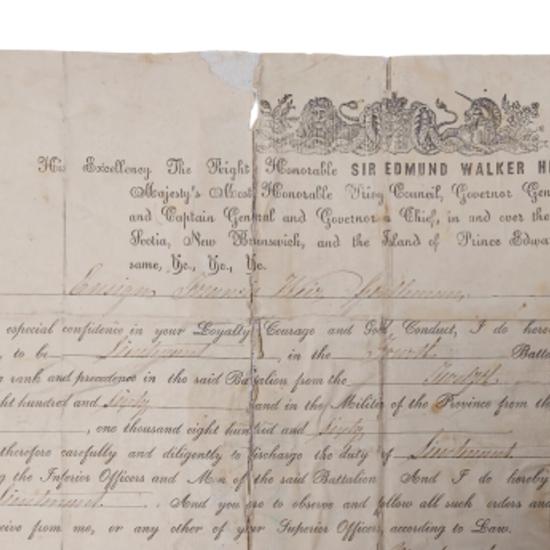 His Excellency The Right Honorable SIR EDMUND WALKER HE
Majesty's Most Honorable Privy Council, Governor Gen
and Captain General and Governor in Chief, in and over the
Scotia, New Brunswick, and the Island of Prince Edwa
same, &c., &c., &c.
Ensign Gentleman
especial confidence in your Loyalty Courage and Good Conduct, I do here
, to be Lieutenant , in the Fourth Batta
rank and precedence in the said Battalion from the Twelfth
ht hundred and sixty and in the Militia of the Province from th
, one thousand eight hundred and sixty
therefore carefully and diligently to discharge the duty of Lieutenant
g the Inferior Officers and Men of the said Battalion And I do hereby
Lieutenant . And you are to observe and follow all such orders and
ceive from me, or any other of your Superior Officers, according to Law.